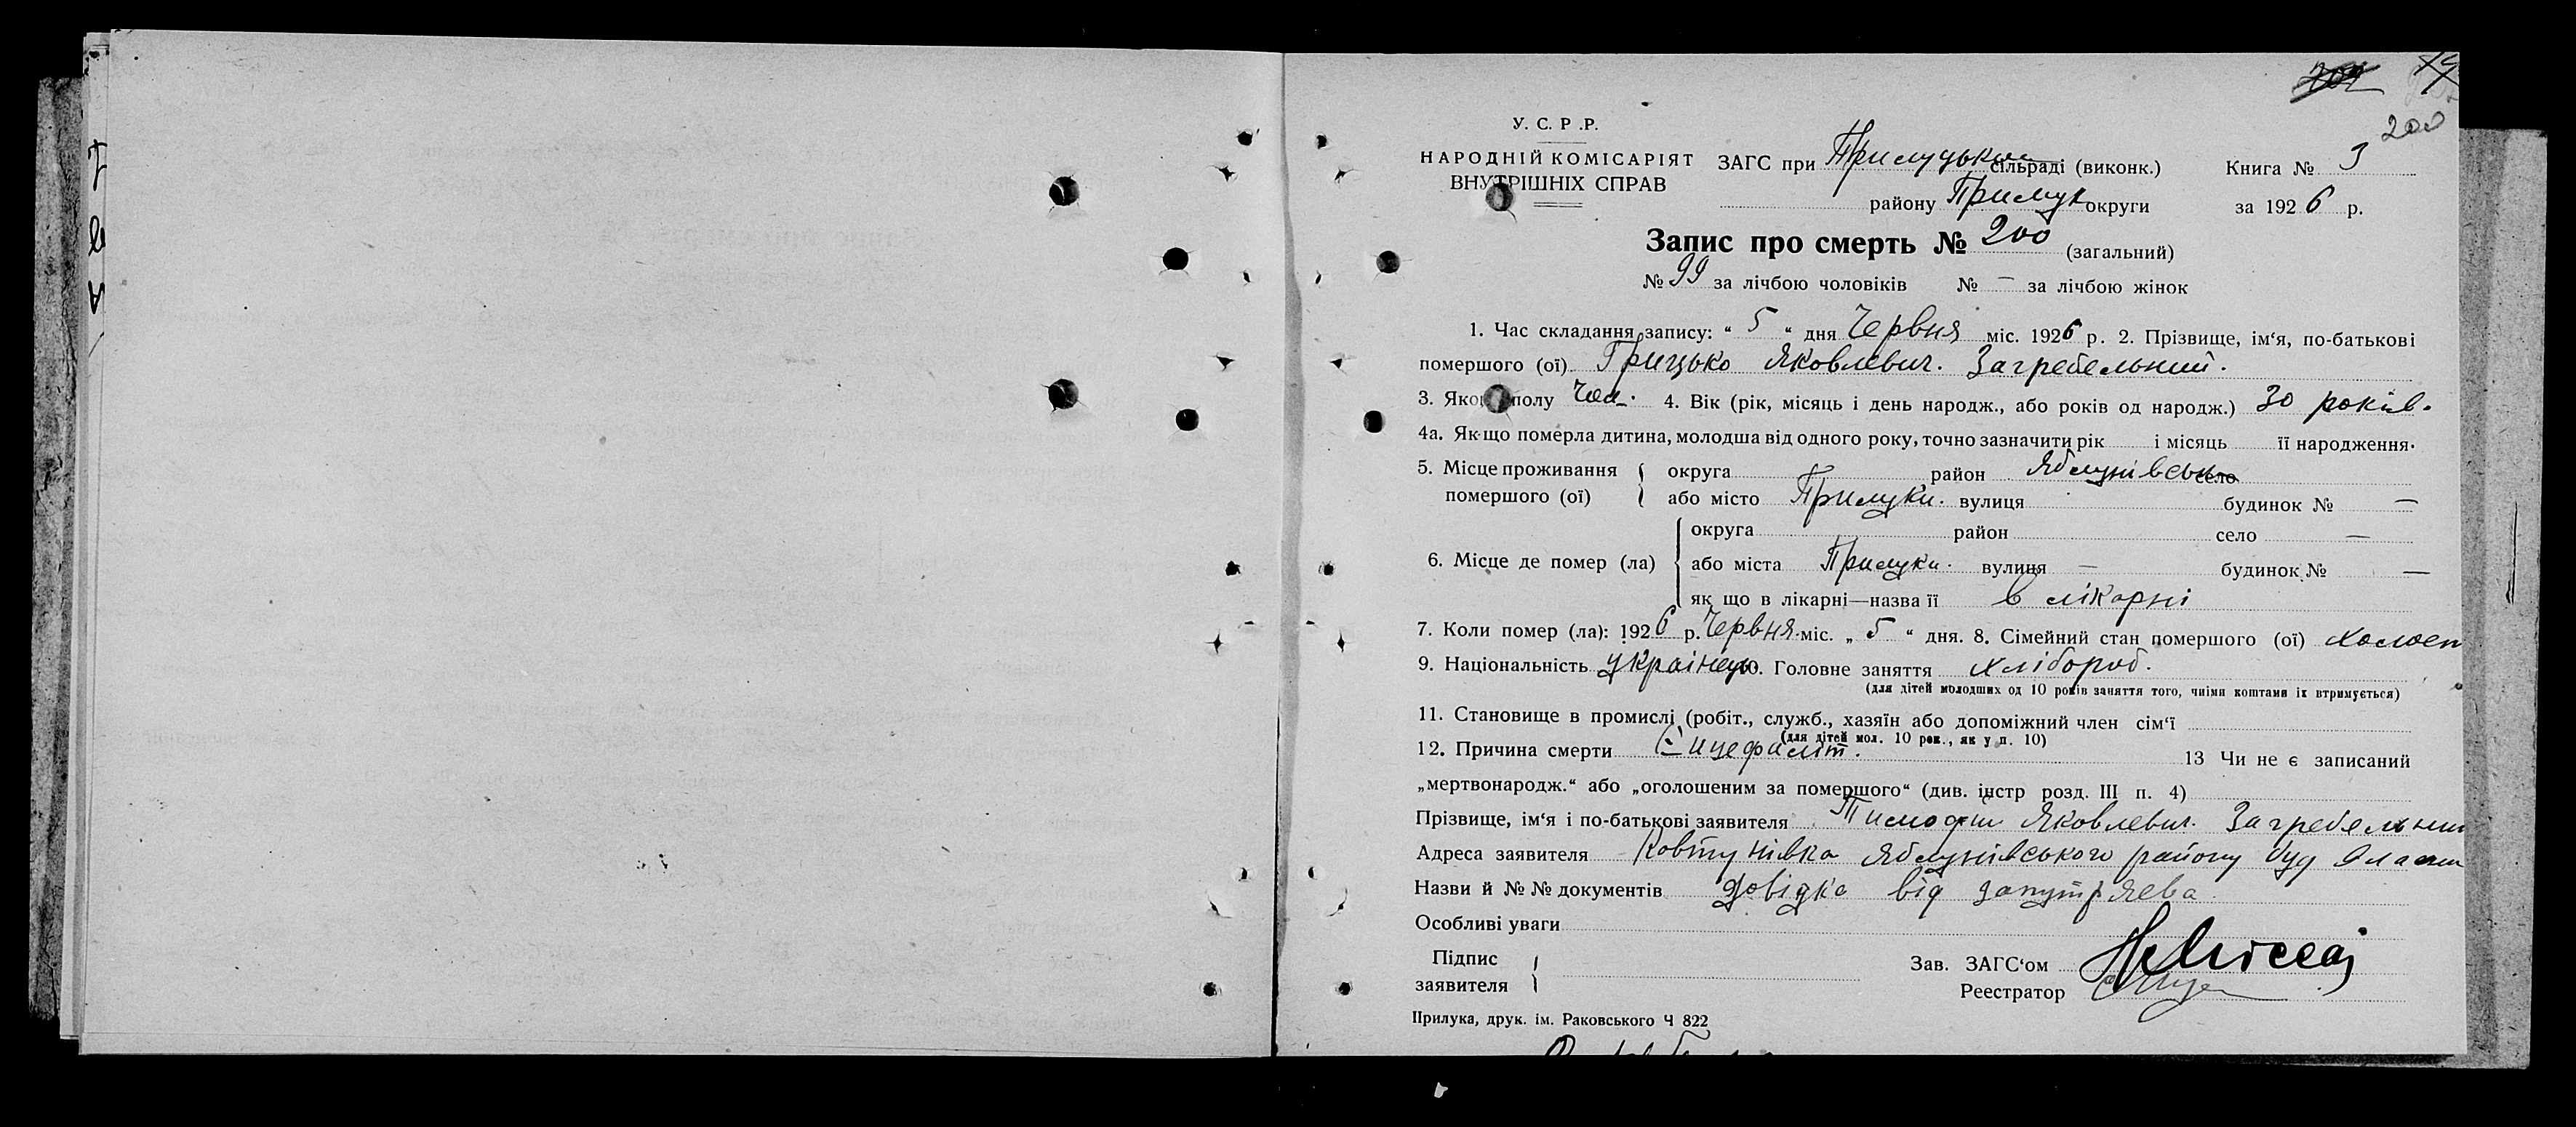 200
У. С. Р. Р.
НАРОДНІЙ КОМІСАРІЯТ
ВНУТРІШНІХ СПРАВ
ЗАГС при Прилуцьком сільраді (виконк.) Книга № 3
району Прилук округи за 1926 р.
Запис про смерть № 200 (загальний)
№ 99 за лічбою чоловіків № — за лічбою жінок
1. Час складання запису: “ 5 “ дня Червня міс. 1926 р. 2. Прізвище, ім‘я, по-батькові
помершого (ої) Грицько Яковлевич. Загребельний.
3. Якого полу Чол. 4. Вік (рік, місяць і день народж., або років од народж.) 30 років.
4а. Якщо померла дитина, молодша від одного року, точно зазначити рік і місяць її народження.
5. Місце проживання округа район Яблунівськ село
помершого (ої) або місто Прилуки. вулиця будинок № —
округа район село —
6. Місце де помер (ла) або міста Прилуки. вулиця — будинок № —
як що в лікарні—назва її в лікарні
7. Коли помер (ла): 1926 р. Червня міс. „ 5 “ дня. 8. Сімейний стан помершого (ої) холост
9. Національність українець 10. Головне заняття хлібороб.
(для дітей молодших од 10 років заняття того, чиїми коштами їх втримується)
11. Становище в промислі (робіт., служб., хазяїн або допоміжний член сім‘ї
(для дітей мол. 10 рок., як у п. 10)
12. Причина смерти 13 Чи не є записаний
„мертвонародж.“ або „оголошеним за помершого“ (див. інстр розд. III п. 4)
Прізвище, ім‘я і по-батькові заявителя Тимофій Яковлевич. Загребельний
Адреса заявителя Ковтунівка Яблунівського району буд власн
Назви й №№ документів Довідка від
Особливі уваги
Підпис
заявителя
Зав. ЗАГС‘ом
Реєстратор
Прилука, друк. ім. Раковського Ч 822